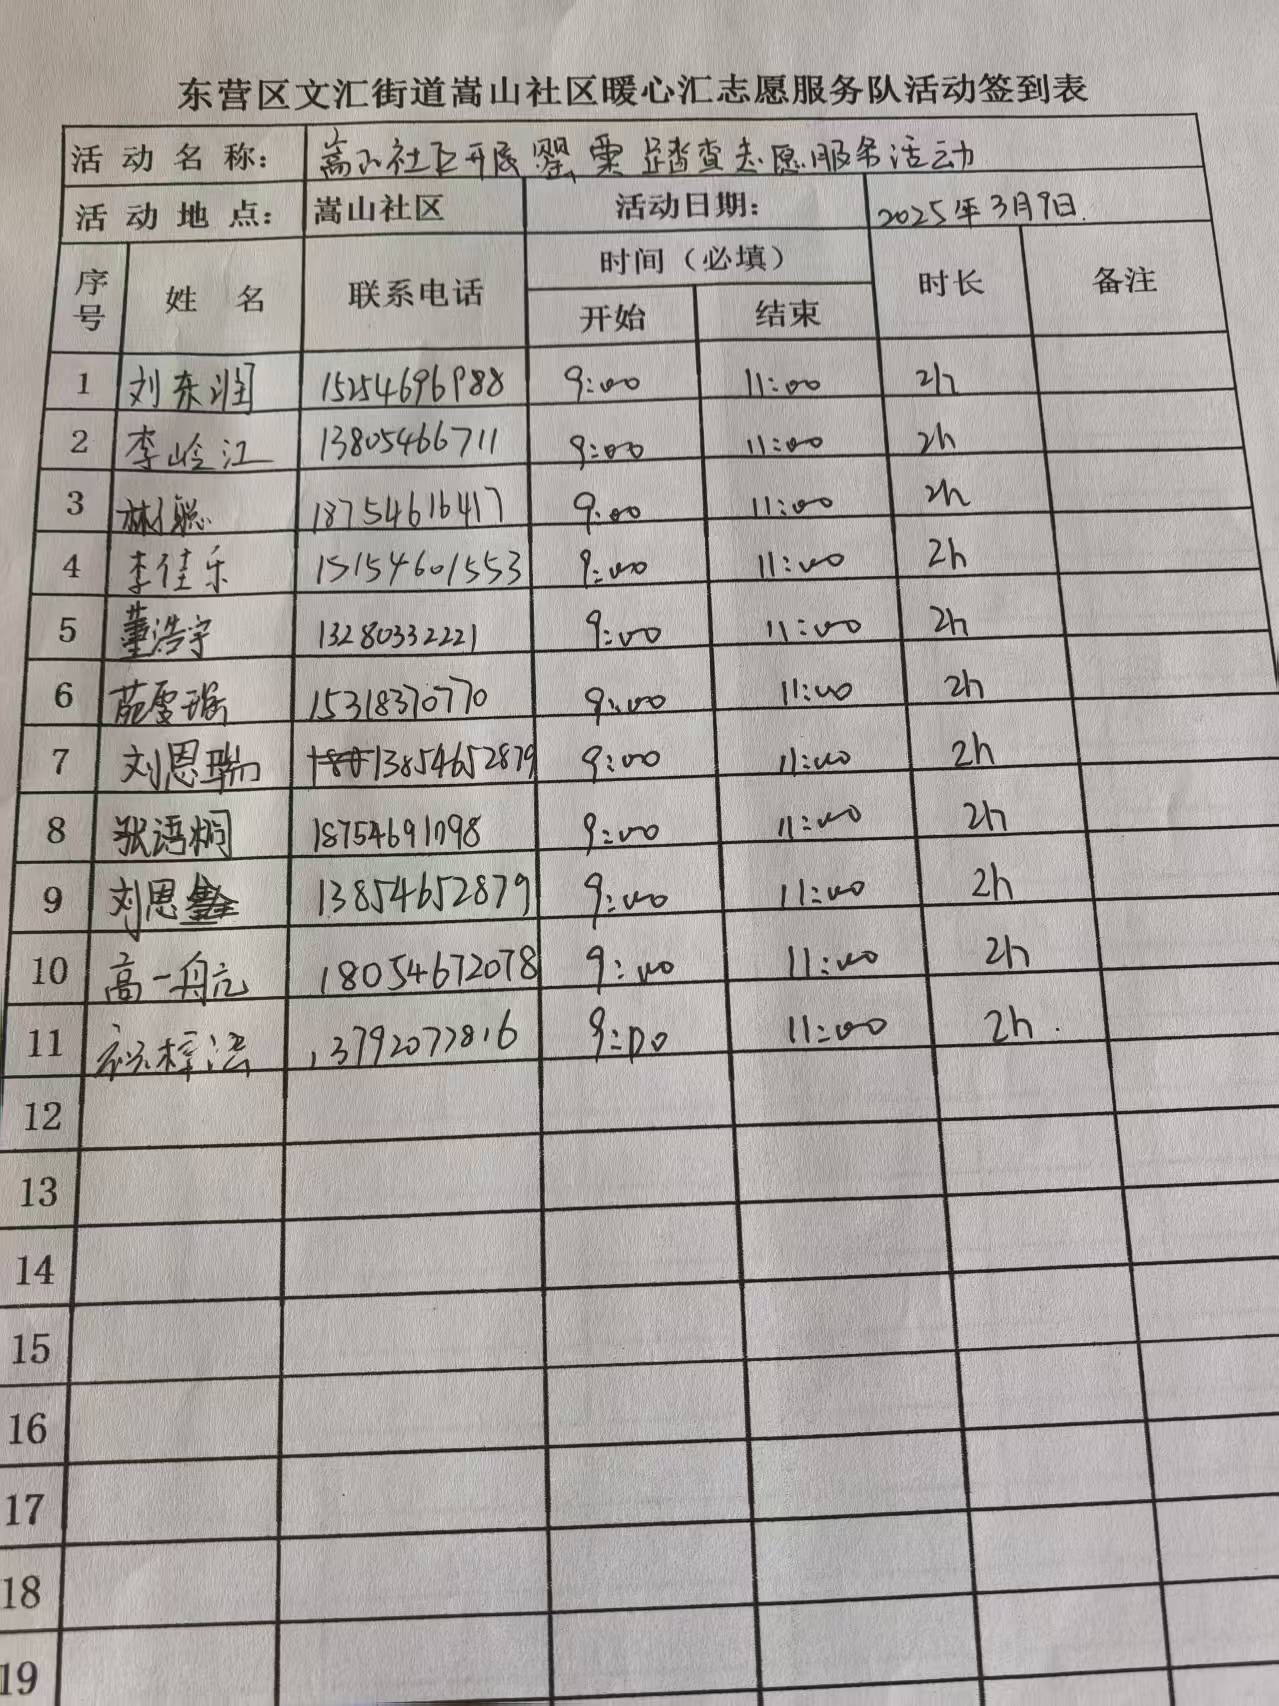 东营区文汇街道嵩山社区暖心汇志愿服务队活动签到表
活动名称: 嵩山社区开展罂粟踏查志愿服务活动
活动地点: 嵩山社区 活动日期: 2025年3月9日.
序号 姓名 联系电话 时间(必填) 时长 备注
开始 结束
1 刘东润 15254696988 9:00 11:00 2h
2 李岭江 13805466711 9:00 11:00 2h
3 林聪 18754616417 9:00 11:00 2h
4 李佳乐 15154601553 9:00 11:00 2h
5 董浩宇 13280332221 9:00 11:00 2h
6 15318370770 9:00 11:00 2h
7 刘恩瑞 13854652879 9:00 11:00 2h
8 张语桐 9:00 11:00 2h
9 刘恩 13854652879 9:00 11:00 2h
10 高一航 18054672078 9:00 11:00 2h
11 13792077816 9:00 11:00 2h.
12
13
14
15
16
17
18
19